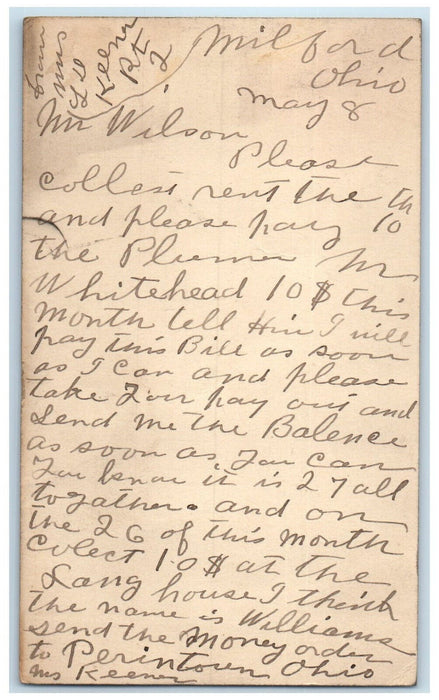 from
Mrs
L D
Keener
Rt
2
Milford
Ohio
May 8
Mr Wilson
Please
collest rent the th
and please pay 10
the Plumer Mr
Whitehead 10 $ this
month tell Him I will
pay this Bill as soon
as I can and please
take Your pay out and
send me the Balence
as soon as You can
You know it is 27 all
togather. and on
the 26 of this month
Colect 10 $ at the
Lang house I think
the name is Williams
send the money order
to Perintown Ohio
Mrs Keener